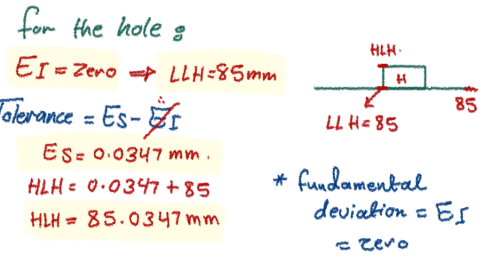 for the hole :
EI = zero ⇒ LLH=85mm
Tolerance = ES - EI
ES = 0.0347 mm.
HLH = 0.0347 + 85
HLH = 85.0347mm
HLH.
H
85
LLH=85
* fundamental
deviation = EI
= zero